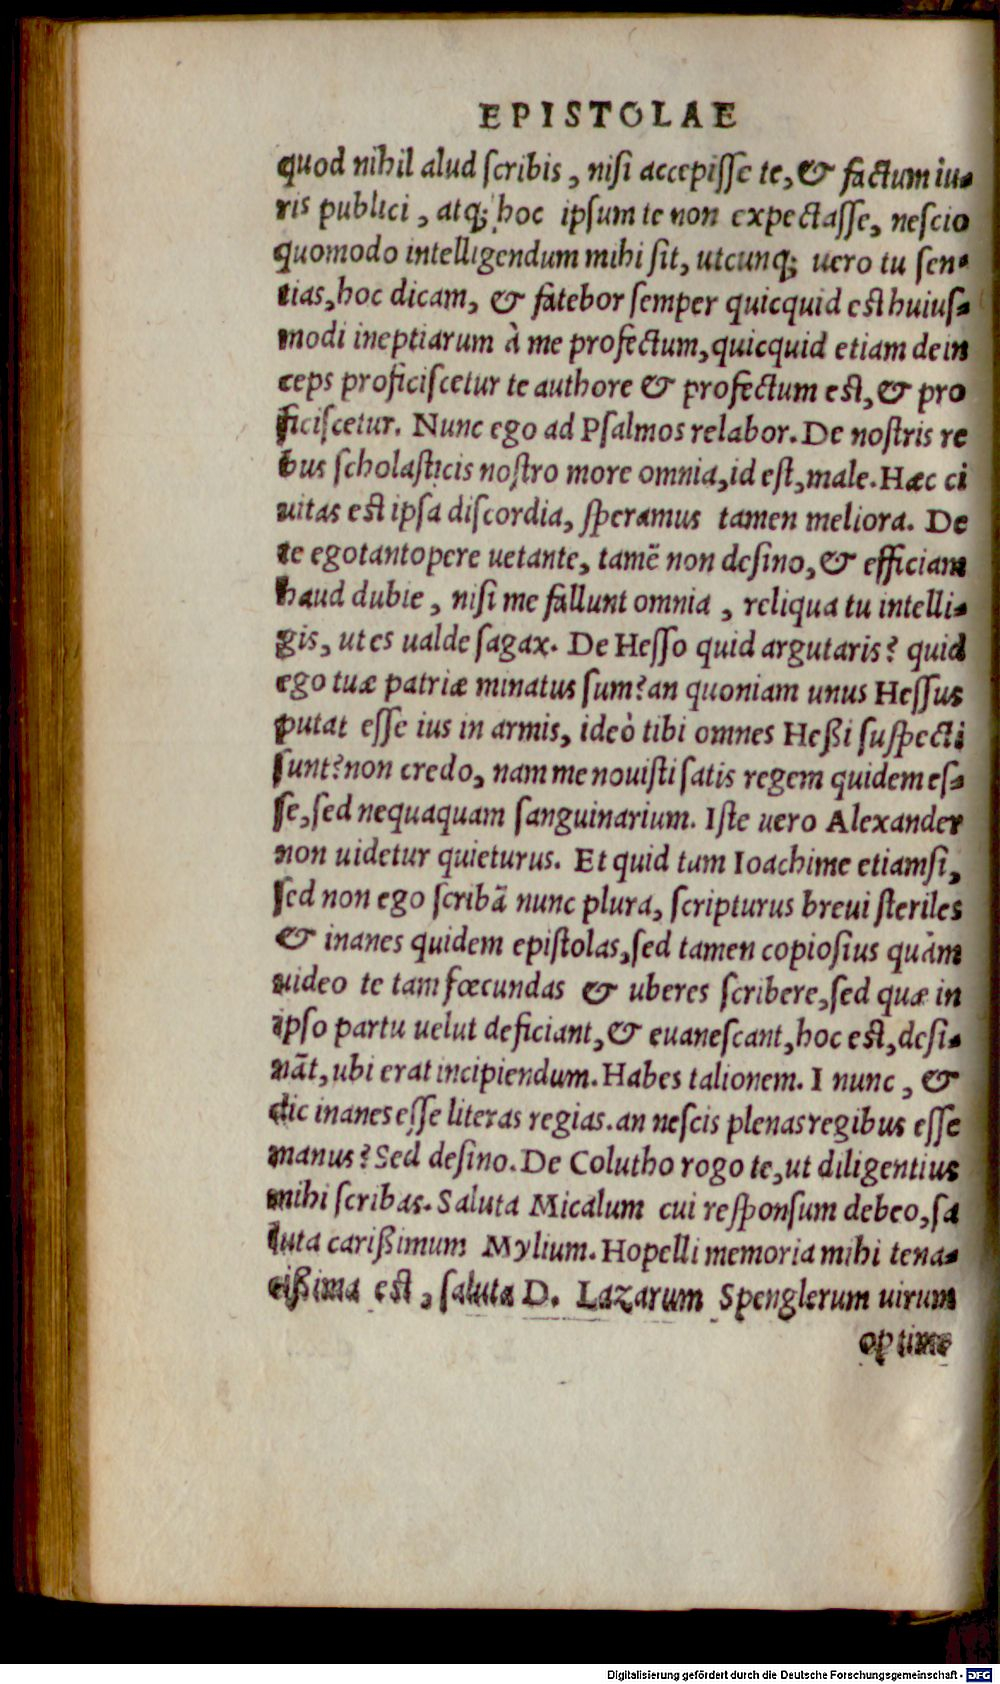 EPISTOLAE
quod nihil alud ſcribis, niſi accepiſſe te, & factum iu-
ris publici, atq; hoc ipſum te non expectaſſe, neſcio
quomodo intelligendum mihi ſit, utcunq; uero tu ſen-
tias, hoc dicam, & fatebor ſemper quicquid eſt huiuſ-
modi ineptiarum à me profectum, quicquid etiam dein
ceps proficiſcetur te authore & profectum eſt, & pro
ficiſcetur. Nunc ego ad Pſalmos relabor. De noſtris re
bus ſcholaſticis noſtro more omnia, id eſt, male. Haec ci
uitas eſt ipſa diſcordia, ſperamus tamen meliora. De
te ego tantopere uetante, tamẽ non deſino, & efficiam
haud dubie, niſi me fallunt omnia, reliqua tu intelli-
gis, ut es ualde ſagax. De Heſſo quid argutaris? quid
ego tuæ patriæ minatus ſum? an quoniam unus Heſſus
putat eſſe ius in armis, ideò tibi omnes Heßi ſuſpecti
ſunt? non credo, nam me nouiſti ſatis regem quidem eſ-
ſe, ſed nequaquam ſanguinarium. Iſte uero Alexander
non uidetur quieturus. Et quid tum Ioachime etiamſi,
ſed non ego ſcribã nunc plura, ſcripturus breui ſteriles
& inanes quidem epiſtolas, ſed tamen copioſius quàm
uideo te tam fœcundas & uberes ſcribere, ſed quæ in
ipſo partu uelut deficiant, & euaneſcant, hoc eſt, deſi-
nãt, ubi erat incipiendum. Habes talionem. I nunc, &
dic inanes eſſe literas regias. an neſcis plenas regibus eſſe
manus? Sed deſino. De Colutho rogo te, ut diligentius
mihi ſcribas. Saluta Micalum cui reſponſum debeo, ſa
luta carißimum Mylium. Hopelli memoria mihi tena-
cißima eſt, ſaluta D. Lazarum Spenglerum uirum
optime
Digitalisierung gefördert durch die Deutsche Forschungsgemeinschaft - DFG